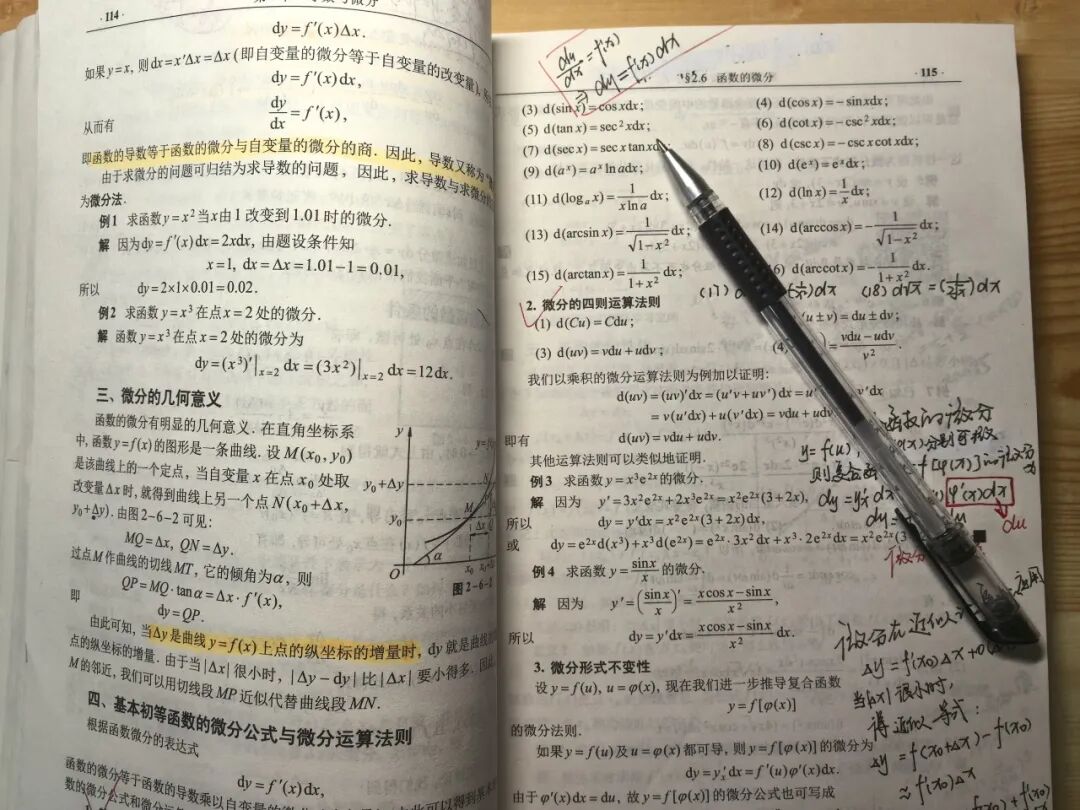 ·114·
dy=f′(x)Δx.
如果y=x, 则dx=x′Δx=Δx(即自变量的微分等于自变量的改变量),
dy=f′(x)dx,
从而有 dy/dx=f′(x),
即函数的导数等于函数的微分与自变量的微分的商. 因此, 导数又称为“
由于求微分的问题可归结为求导数的问题, 因此, 求导数与求微分
为微分法.
例1 求函数y=x²当x由1改变到1.01时的微分.
解 因为dy=f′(x)dx=2xdx, 由题设条件知
x=1, dx=Δx=1.01−1=0.01,
所以 dy=2×1×0.01=0.02.
例2 求函数y=x³在点x=2处的微分.
解 函数y=x³在点x=2处的微分为
dy=(x³)′|x=2 dx=(3x²)|x=2 dx=12dx.
三、微分的几何意义
函数的微分有明显的几何意义. 在直角坐标系
中, 函数y=f(x)的图形是一条曲线. 设M(x₀, y₀)
是该曲线上的一个定点, 当自变量x在点x₀处取
改变量Δx时, 就得到曲线上另一个点N(x₀+Δx,
y₀+Δy). 由图2-6-2可见:
MQ=Δx, QN=Δy.
过点M作曲线的切线MT, 它的倾角为α, 则
QP=MQ·tanα=Δx·f′(x₀),
即 dy=QP.
y
y₀+Δy
y₀
M
N
Δx
α
O
x₀
图2-6-2
由此可知, 当Δy是曲线y=f(x)上点的纵坐标的增量时, dy就是曲线
点的纵坐标的增量. 由于当|Δx|很小时, |Δy−dy|比|Δx|要小得多. 因此
M的邻近, 我们可以用切线段MP近似代替曲线段MN.
四、基本初等函数的微分公式与微分运算法则
根据函数微分的表达式
dy=f′(x)dx,
函数的微分等于函数的导数乘以自变量的
数的微分公式和微分运
dy/dx=f′(x)
⇒ dy=f′(x)dx
§2.6 函数的微分 ·115·
(3) d(sinx)=cosxdx; (4) d(cosx)=−sinxdx;
(5) d(tanx)=sec²xdx; (6) d(cotx)=−csc²xdx;
(7) d(secx)=secxtanxdx (8) d(cscx)=−cscxcotxdx;
(9) d(aˣ)=aˣlnadx; (10) d(eˣ)=eˣdx;
(11) d(logₐx)=1/(xlna)dx; (12) d(lnx)=1/x dx;
(13) d(arcsinx)=1/√(1−x²)dx; (14) d(arccosx)=−1/√(1−x²)dx;
(15) d(arctanx)=1/(1+x²)dx; 6) d(arccotx)=−1/(1+x²)dx.
(17) d (18) d√x=(1/2√x)dx
2. 微分的四则运算法则
(1) d(Cu)=Cdu; u±v)=du±dv;
(3) d(uv)=vdu+udv; (4) =(vdu−udv)/v².
我们以乘积的微分运算法则为例加以证明:
d(uv)=(uv)′dx=(u′v+uv′)dx= v′dx
=v(u′dx)+u(v′dx)=vdu+udv
即有 d(uv)=vdu+udv.
其他运算法则可以类似地证明.
例3 求函数y=x³e²ˣ的微分.
解 因为 y′=3x²e²ˣ+2x³e²ˣ=x²e²ˣ(3+2x),
所以 dy=y′dx=x²e²ˣ(3+2x)dx,
或 dy=e²ˣd(x³)+x³d(e²ˣ)=e²ˣ·3x²dx+x³·2e²ˣdx=x²e²ˣ(3
例4 求函数y=sinx/x的微分.
解 因为 y′=(sinx/x)′=(xcosx−sinx)/x²,
所以 dy=y′dx=(xcosx−sinx)/x² dx.
3. 微分形式不变性
设y=f(u), u=φ(x), 现在我们进一步推导复合函数
y=f[φ(x)]
的微分法则.
如果y=f(u)及u=φ(x)都可导, 则y=f[φ(x)]的微分为
dy=y′ₓdx=f′(u)φ′(x)dx.
由于φ′(x)dx=du, 故y=f[φ(x)]的微分公式也可写成
函数的微分
y=f(u), (x)分别可微
则复合函 f[φ(x)]的微分为
dy=y′x dx φ′(x)dx
du
微分在近似
Δy=f′(x₀)Δx+o(
当|Δx|很小时,
得近似等式:
Δy=f(x₀+Δx)−f(x₀)
≈f′(x₀)Δx